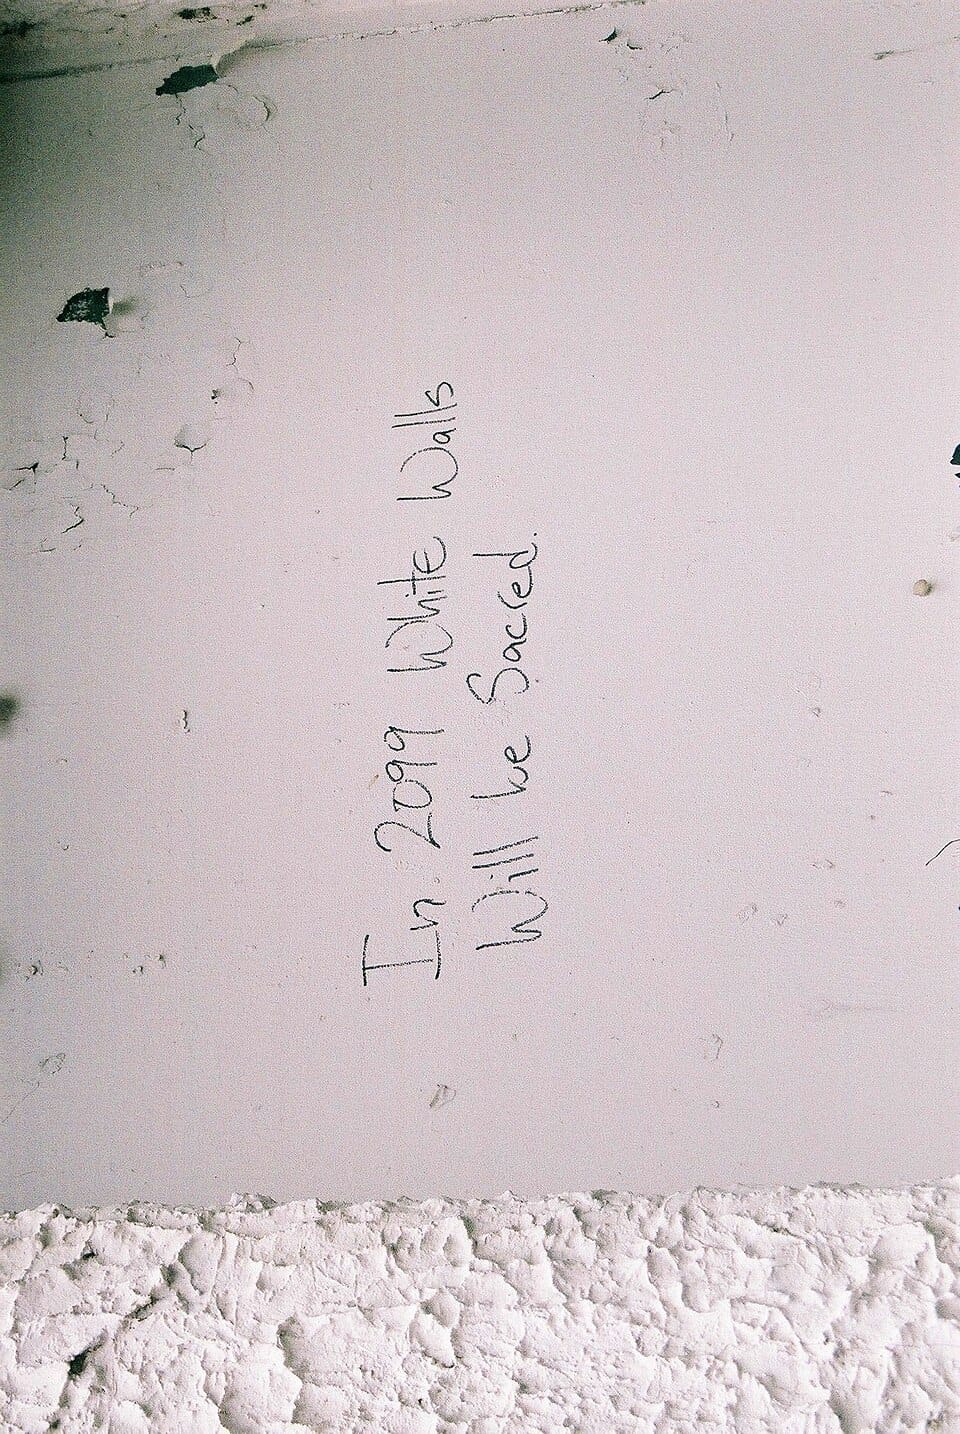 In 2099 White Walls
Will be Sacred.